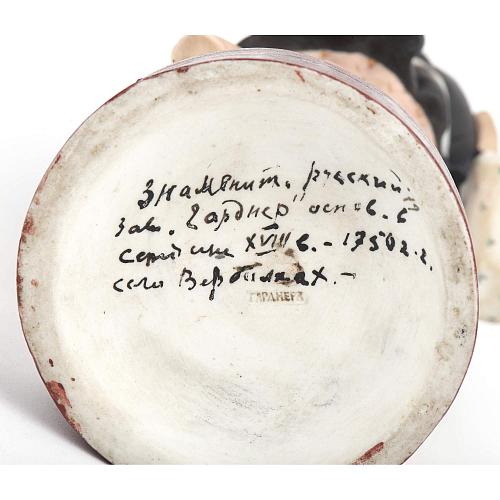 Знаменит. русский
зав. "Гарднер" основ. в
середине XVIII в. – 1750 г.г.
село Вербилках. –
ГАРДНЕРЪ